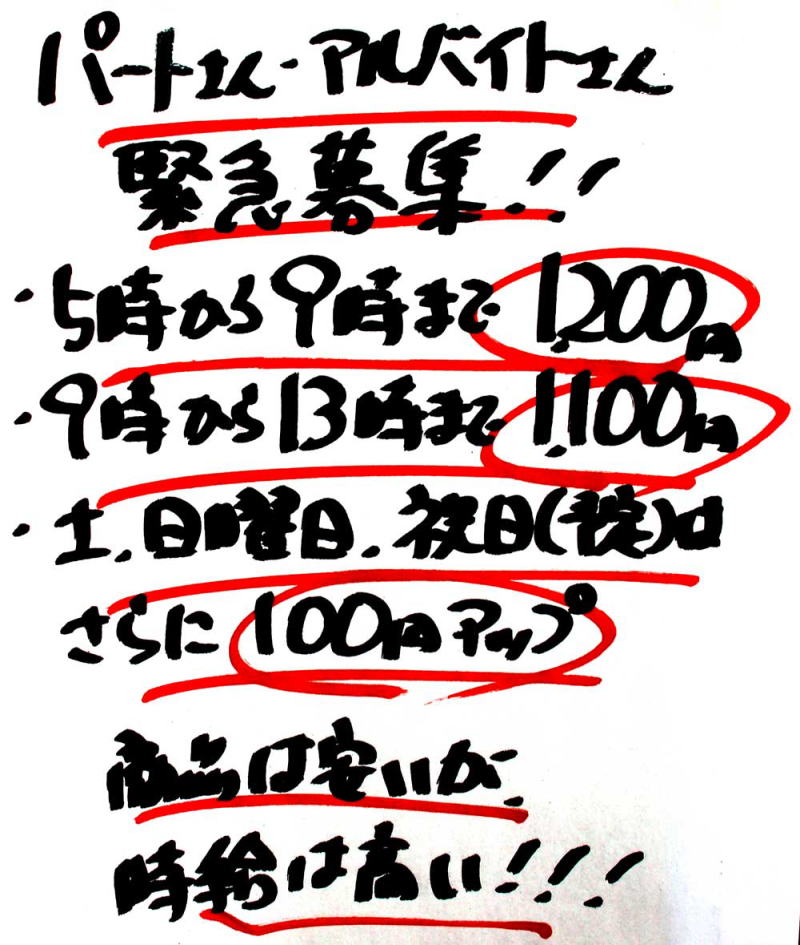 パートさん・アルバイトさん
緊急募集!!
・5時から9時まで1,200円
・9時から13時まで1,100円
・土、日曜日、祝日(我錠)は
さらに100円アップ
商品は安いが、
時給は高い!!!